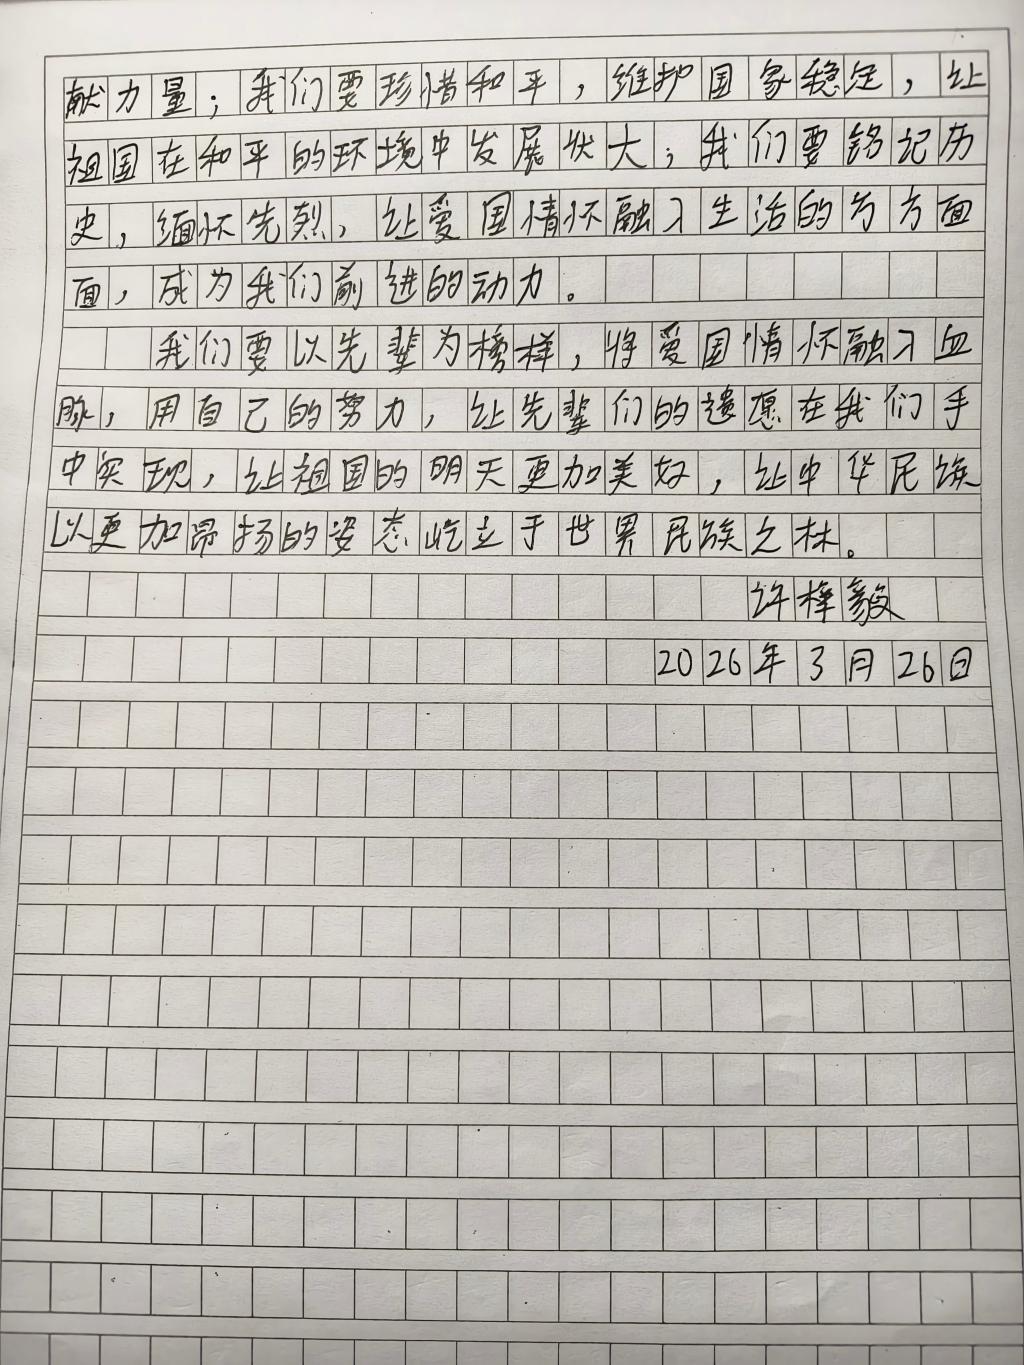 献力量；我们要珍惜和平，维护国家稳定，让
祖国在和平的环境中发展状大；我们要铭记历
史，缅怀先烈，让爱国情怀融入生活的方方面
面，成为我们前进的动力。
我们要以先辈为榜样，将爱国情怀融入血
脉，用自己的努力，让先辈们的遗愿在我们手
中实现，让祖国的明天更加美好，让中华民族
以更加昂扬的姿态屹立于世界民族之林。
许梓毅
2026年3月26日